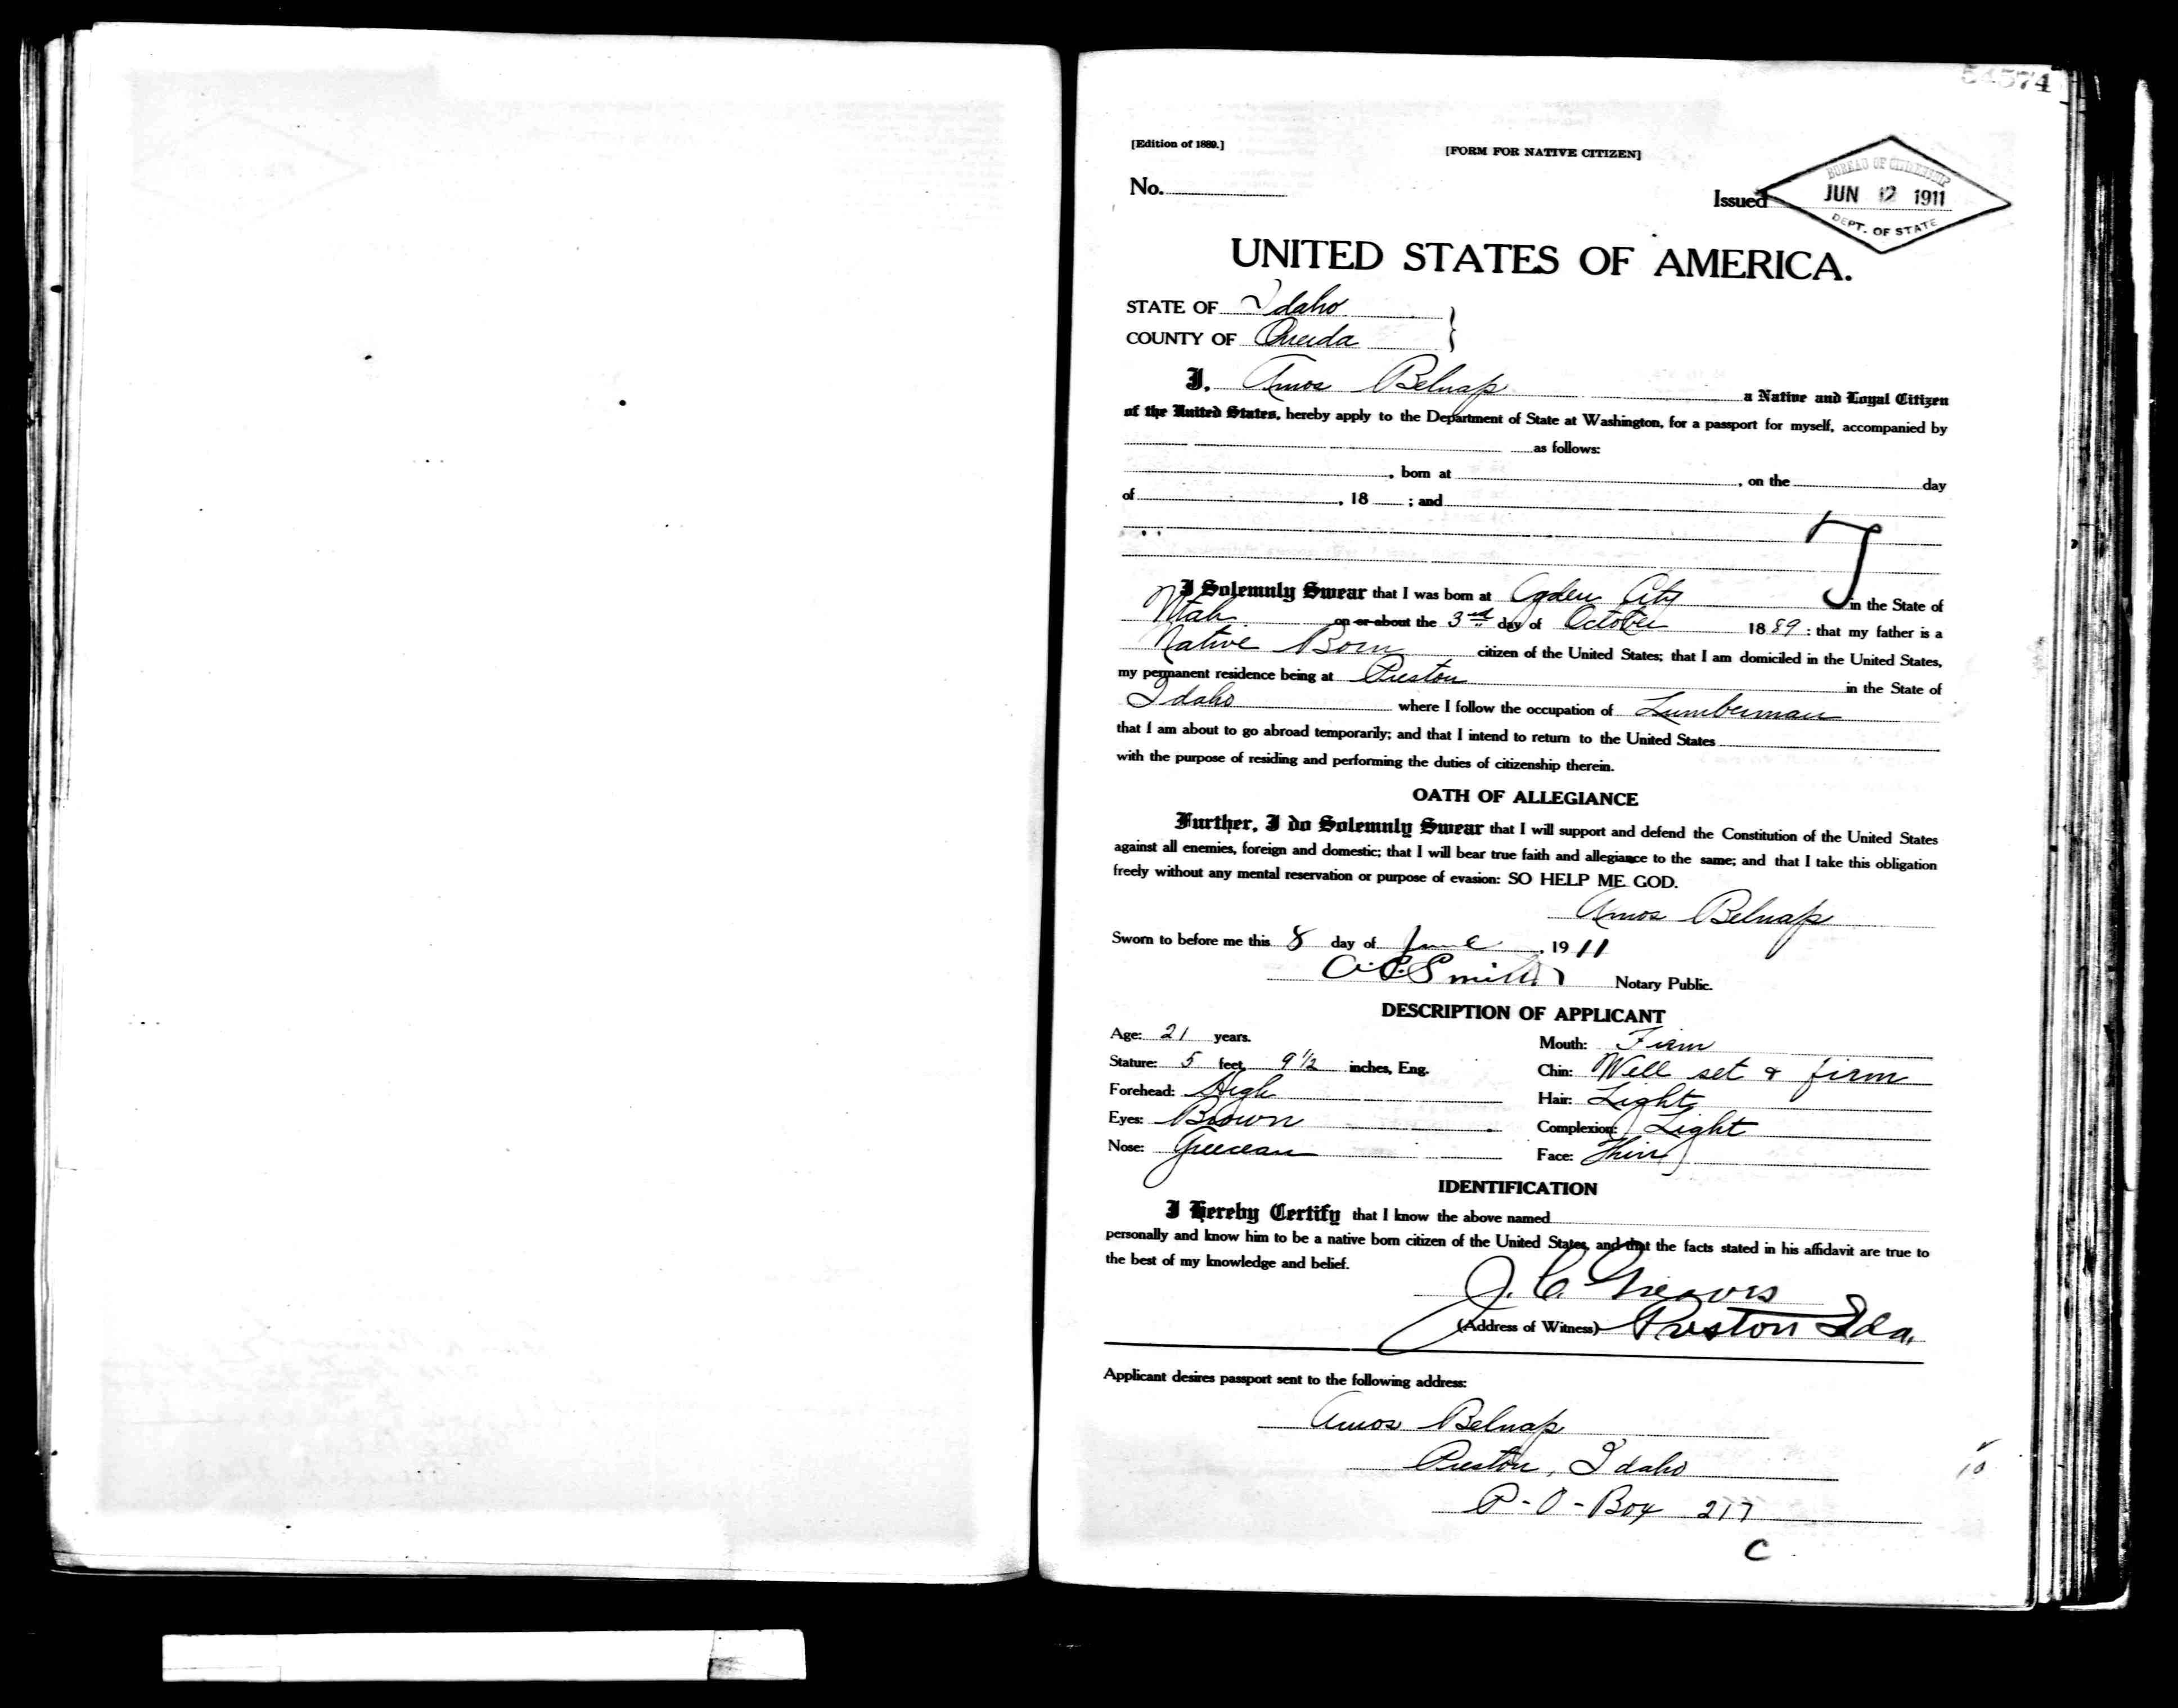 54574
[Edition of 1889.]
[FORM FOR NATIVE CITIZEN]
No.
Issued
BUREAU OF CITIZENSHIP
JUN 12 1911
DEPT. OF STATE
UNITED STATES OF AMERICA.
STATE OF Idaho
COUNTY OF Oneida
I, Amos Belnap a Native and Loyal Citizen
of the United States, hereby apply to the Department of State at Washington, for a passport for myself, accompanied by
as follows:
, born at , on the day
of , 18 ; and
I Solemnly Swear that I was born at Ogden City in the State of
Utah on or about the 3rd day of October 1889 : that my father is a
Native Born citizen of the United States; that I am domiciled in the United States,
my permanent residence being at Preston in the State of
Idaho where I follow the occupation of Lumberman
that I am about to go abroad temporarily; and that I intend to return to the United States
with the purpose of residing and performing the duties of citizenship therein.
OATH OF ALLEGIANCE
Further, I do Solemnly Swear that I will support and defend the Constitution of the United States
against all enemies, foreign and domestic; that I will bear true faith and allegiance to the same; and that I take this obligation
freely without any mental reservation or purpose of evasion: SO HELP ME GOD.
Amos Belnap
Sworn to before me this 8 day of June, 1911
A.C. Smith Notary Public.
DESCRIPTION OF APPLICANT
Age: 21 years.
Mouth: Firm
Stature: 5 feet, 9 1/2 inches, Eng.
Chin: Well set & firm
Forehead: High
Hair: Light
Eyes: Brown
Complexion: Light
Nose: Greecean
Face: Thin
IDENTIFICATION
I Hereby Certify that I know the above named
personally and know him to be a native born citizen of the United States, and that the facts stated in his affidavit are true to
the best of my knowledge and belief.
J. C. Greaves
(Address of Witness) Preston Ida.
Applicant desires passport sent to the following address:
Amos Belnap
Preston, Idaho
P-O-Box 217
C